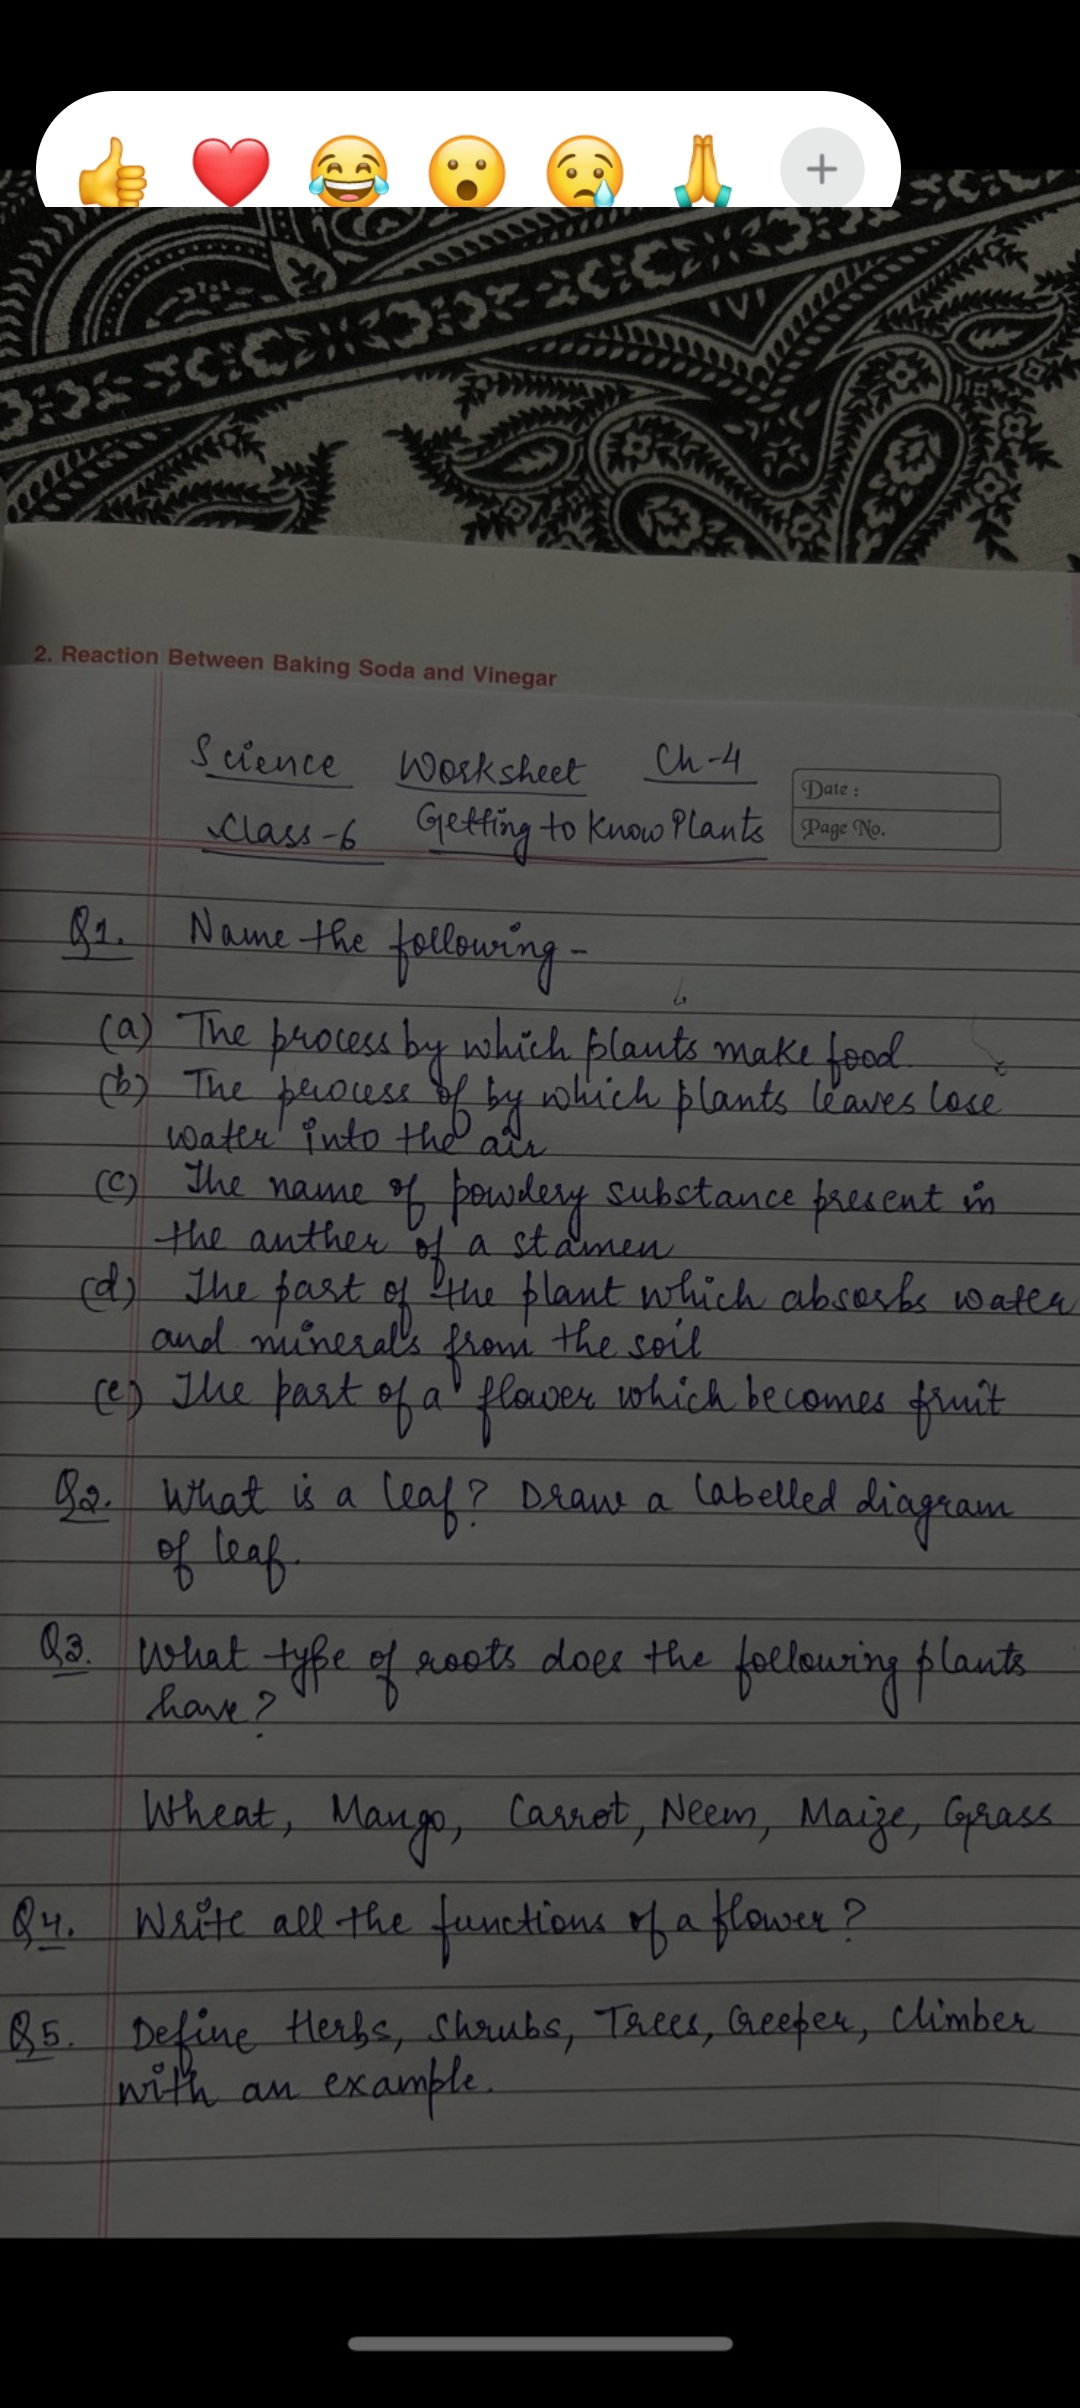 2. Reaction Between Baking Soda and Vinegar
Science Worksheet Ch-4
Date :
Class-6 Getting to Know Plants
Page No.
Q1. Name the following -
(a) The process by which plants make food.
(b) The process of by which plants leaves lose
water into the air
(c) The name of powdery substance present in
the anther of a stamen
(d) The part of the plant which absorbs water
and minerals from the soil
(e) The part of a flower which becomes fruit
Q2. What is a leaf? Draw a labelled diagram
of leaf.
Q3. What type of roots does the following plants
have?
Wheat, Mango, Carrot, Neem, Maize, Grass
Q4. Write all the functions of a flower?
Q5. Define Herbs, Shrubs, Trees, Creeper, Climber
with an example.